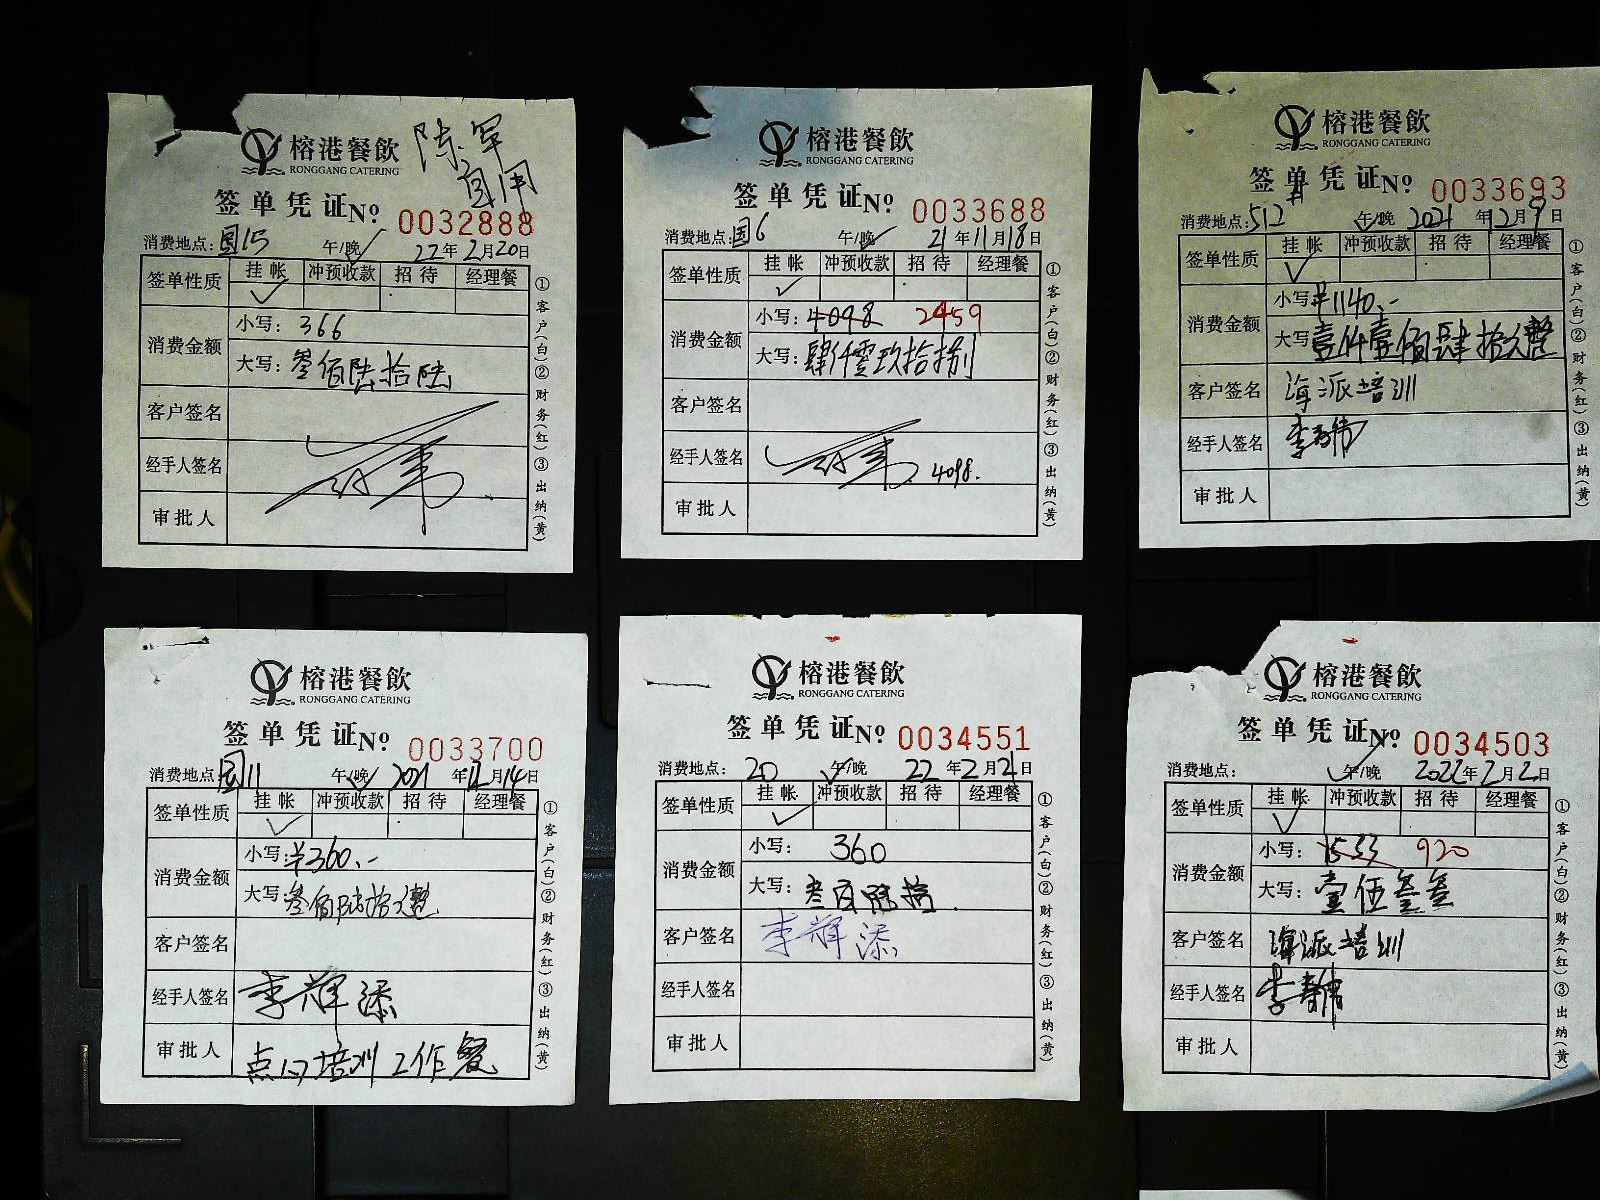 榕港餐飲
RONGGANG CATERING
陈军
自用
签单凭证No 0032888
消费地点:国15 午/晚 22年2月20日
签单性质 挂帐 冲预收款 招待 经理餐
消费金额
小写:366
大写:叁佰陆拾陆
客户签名
经手人签名
审批人
①客户(白)②财务(红)③出纳(黄)
榕港餐飲
RONGGANG CATERING
签单凭证No 0033688
消费地点:国6 午/晚 21年11月18日
签单性质 挂帐 冲预收款 招待 经理餐
消费金额
小写:4098 2459
大写:肆仟零玖拾捌
客户签名
经手人签名 4098.
审批人
①客户(白)②财务(红)③出纳(黄)
榕港餐飲
RONGGANG CATERING
签单凭证No 0033693
消费地点:512 午/晚 2021年12月9日
签单性质 挂帐 冲预收款 招待 经理餐
消费金额
小写:¥1140.-
大写:壹仟壹佰肆拾元整
客户签名 海派培训
经手人签名
审批人
①客户(白)②财务(红)③出纳(黄)
榕港餐飲
RONGGANG CATERING
签单凭证No 0033700
消费地点:国11 午/晚 2021年12月14日
签单性质 挂帐 冲预收款 招待 经理餐
消费金额
小写:¥360.-
大写:叁佰陆拾元整
客户签名
经手人签名 李辉添
审批人 点心培训工作餐
①客户(白)②财务(红)③出纳(黄)
榕港餐飲
RONGGANG CATERING
签单凭证No 0034551
消费地点:20 午/晚 22年2月21日
签单性质 挂帐 冲预收款 招待 经理餐
消费金额
小写:360
大写:叁百陆拾.
客户签名 李辉添
经手人签名
审批人
①客户(白)②财务(红)③出纳(黄)
榕港餐飲
RONGGANG CATERING
签单凭证No 0034503
消费地点: 午/晚 2022年2月2日
签单性质 挂帐 冲预收款 招待 经理餐
消费金额
小写:1533 920
大写:壹伍叁叁
客户签名 海派培训
经手人签名
审批人
①客户(白)②财务(红)③出纳(黄)